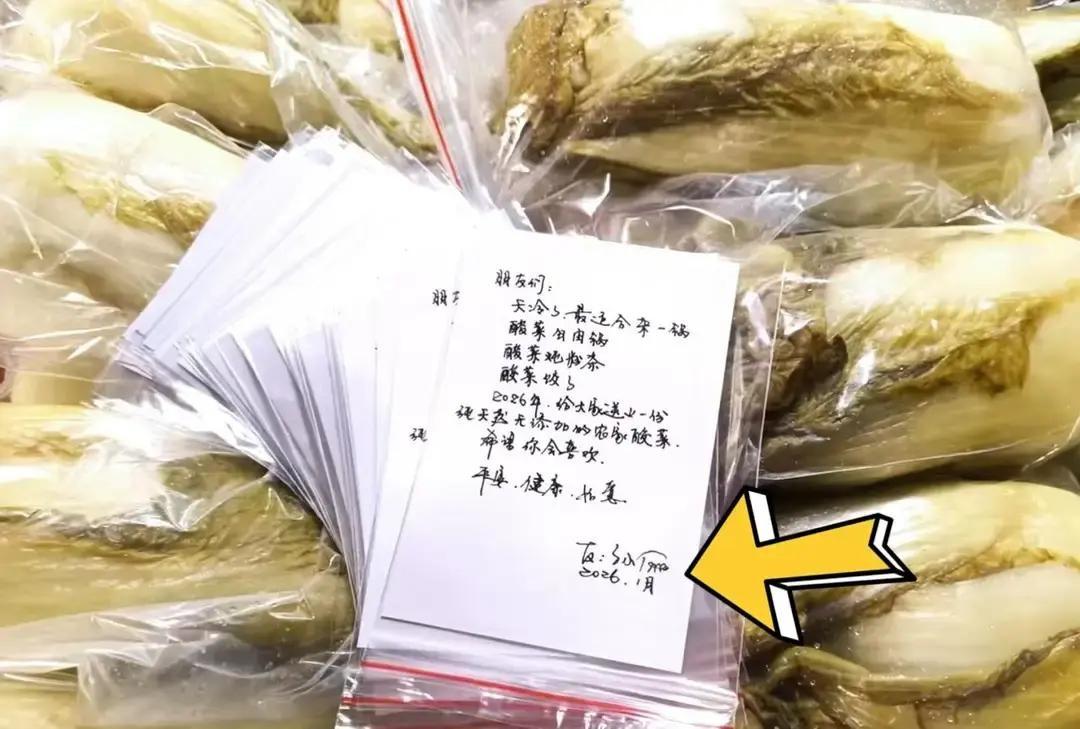 朋友们：
天冷了最适合来一锅
酸菜白肉锅
酸菜炖粉条
酸菜饺子
2026年，给大家送上一份
纯天然无添加的农家酸菜.
希望你会喜欢.
平安.健康.如意
友：孙俪
2026.1月
朋友
纯